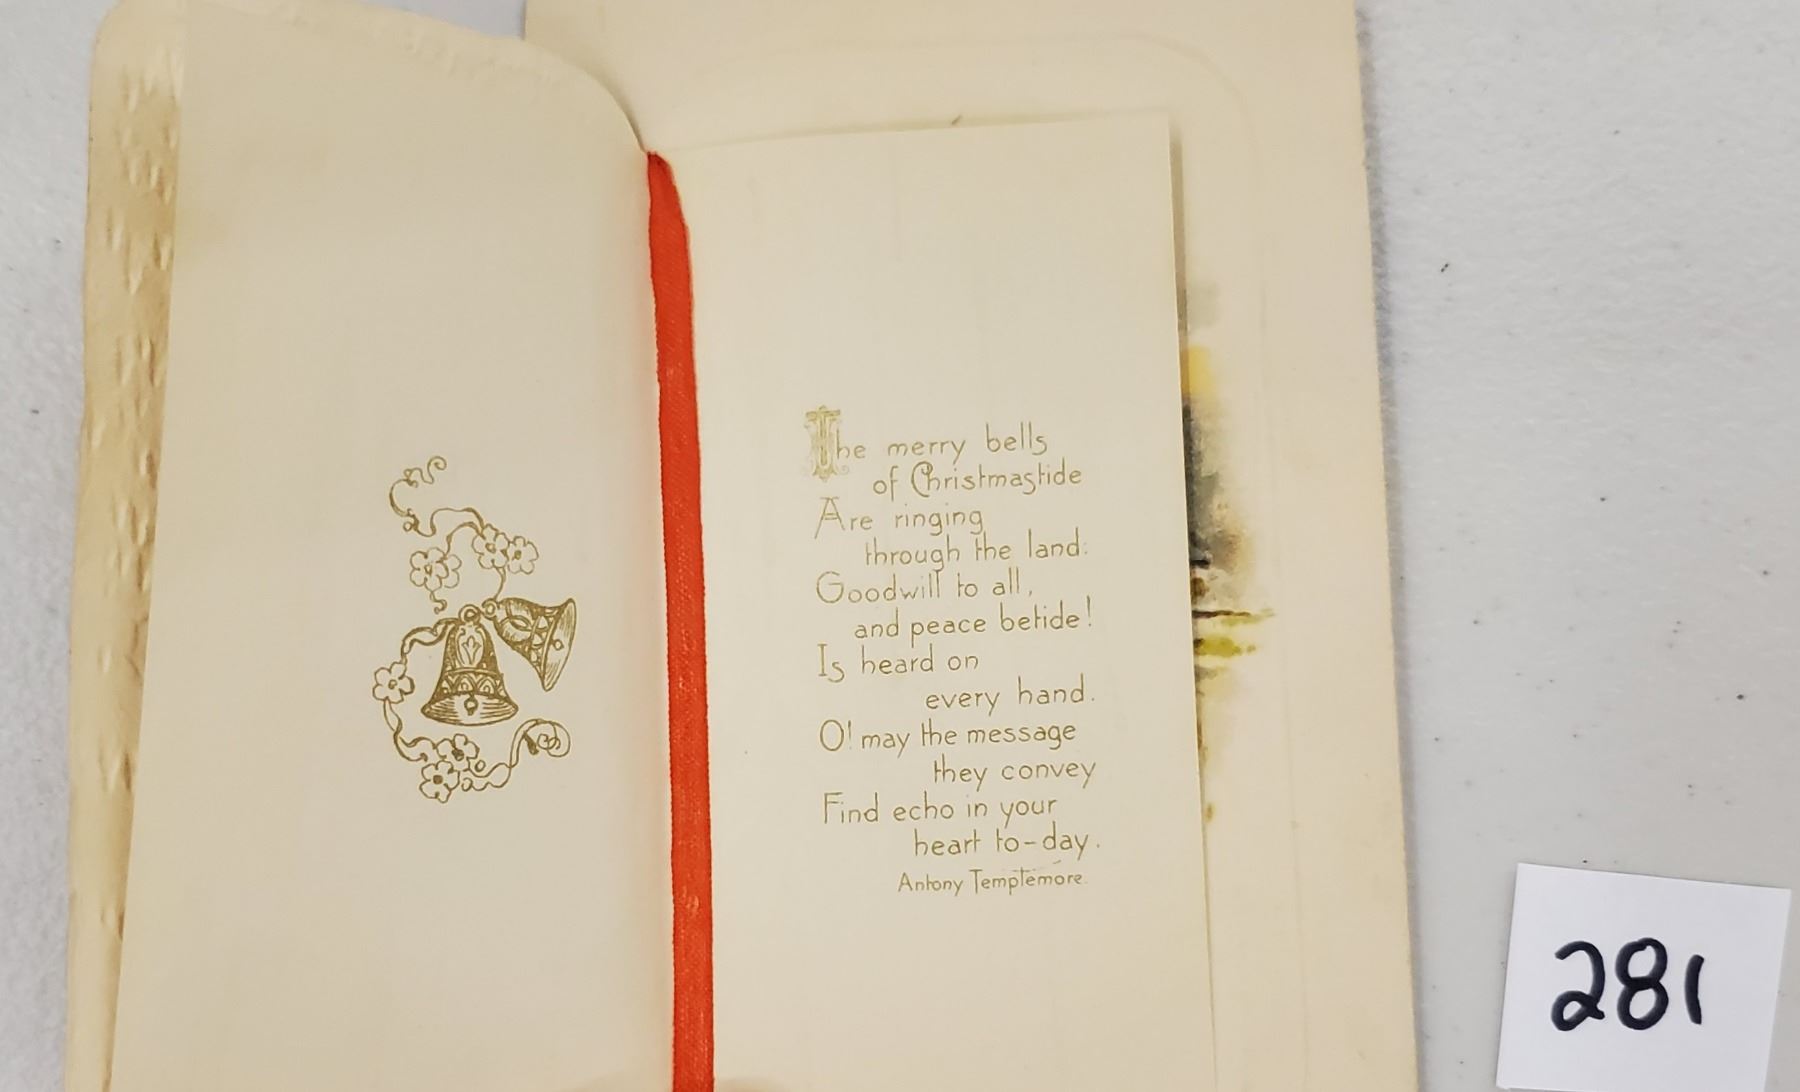 The merry bells
of Christmastide
Are ringing
through the land:
Goodwill to all,
and peace betide!
Is heard on
every hand.
O! may the message
they convey
Find echo in your
heart to-day.
Antony Templemore.
281